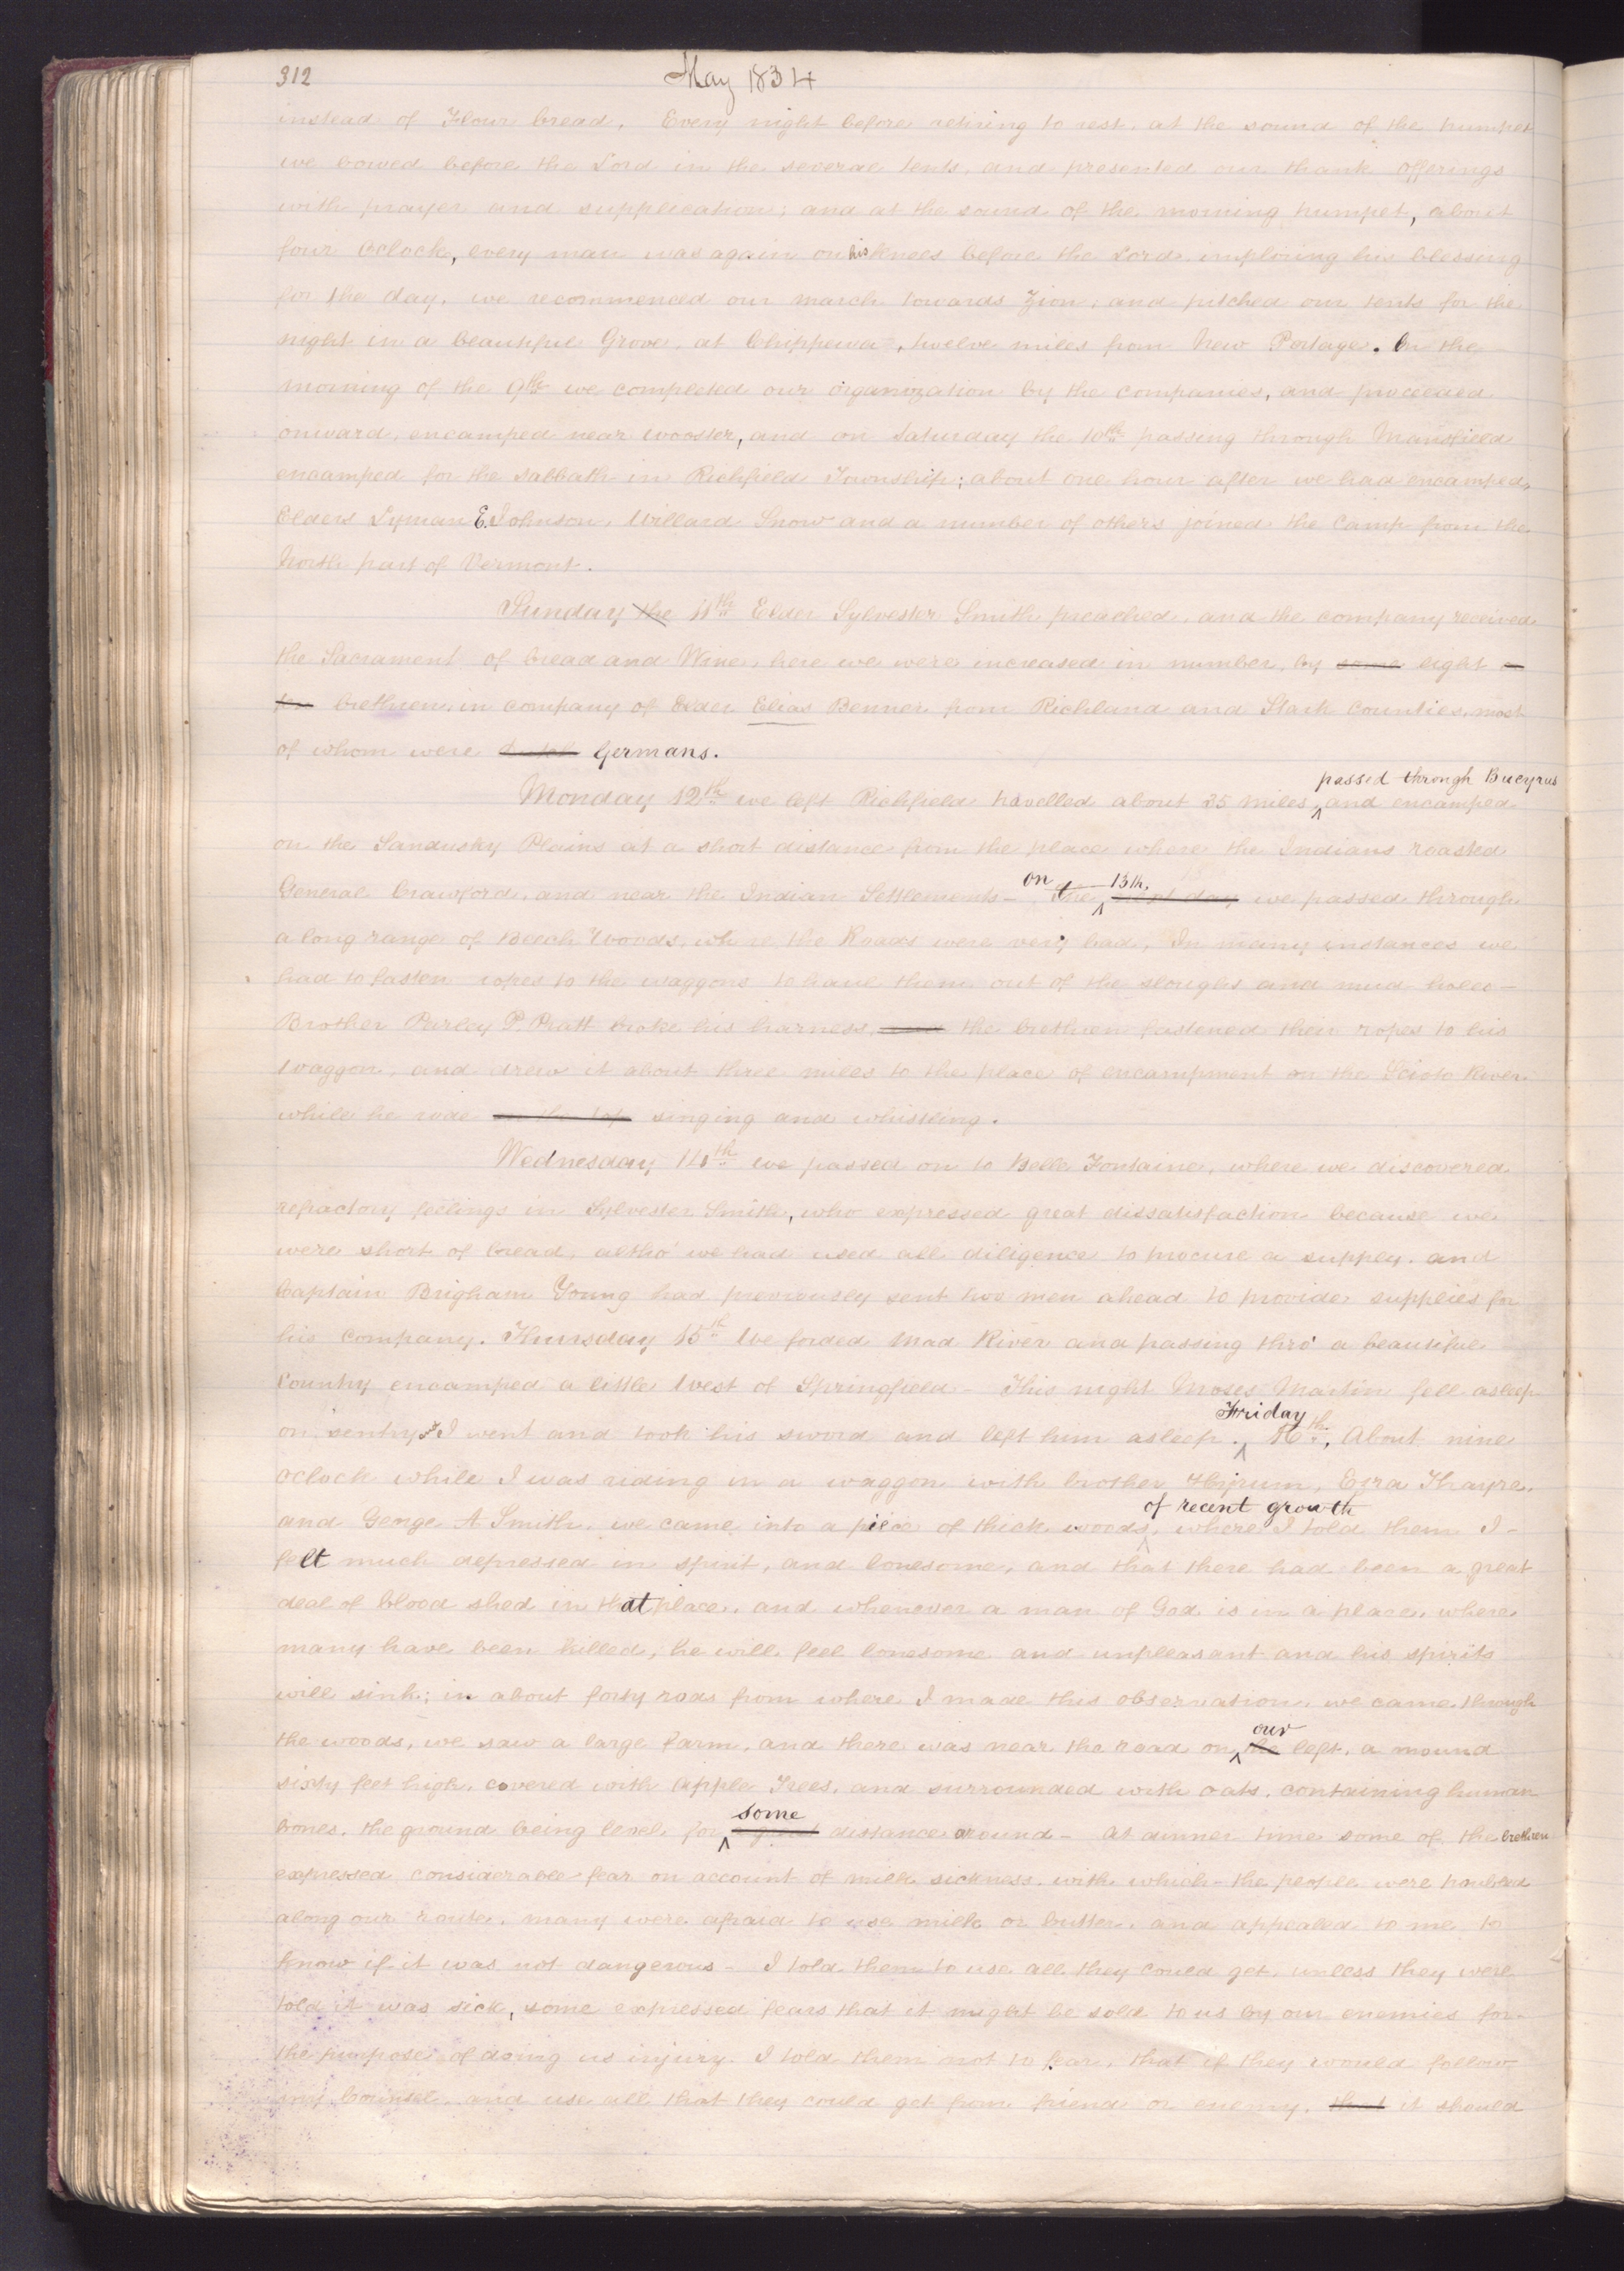 312 May 1834
instead of Flour bread. Every night before retiring to rest, at the sound of the trumpet
we bowed before the Lord in the several tents, and presented our thank offerings
with prayer and supplication; and at the sound of the morning trumpet, about
four oclock, every man was again on his knees before the Lord imploring his blessing
for the day. we recommenced our march towards Zion, and pitched our tents for the
night in a beautiful Grove, at Chippewa, twelve miles from New Portage. On the
morning of the 9th we completed our organization by the companies, and proceeded
onward, encamped near wooster, and on Saturday the 10th passing through Mansfield
encamped for the Sabbath in Richfield Township; about one hour after we had encamped,
Elders Lyman E. Johnson, Willard Snow and a number of others joined the Camp from the
North part of Vermont.
Sunday the 11th Elder Sylvester Smith preached, and the company received
the Sacrament of bread and Wine, here we were increased in number, by some eight or
ten brethren, in company of Elder Elias Benner from Richland and Stark Counties, most
of whom were dutch Germans.
passed through Bucyrus
Monday 12th we left Richfield travelled about 35 miles, and encamped
on the Sandusky Plains at a short distance from the place where the Indians roasted
General Crawford, and near the Indian Settlements— on the 13th. next day we passed through
a long range of Beech Woods, where the Roads were very bad, In many instances we
had to fasten ropes to the waggons to haul them out of the sloughs and mud holes—
Brother Parley P. Pratt broke his harness, and the brethren fastened their ropes to his
waggon, and drew it about three miles to the place of encampment on the Scioto River
while he rode on the top singing and whistling.
Wednesday 14th we passed on to Belle Fontaine, where we discovered
refractory feelings in Sylvester Smith, who expressed great dissatisfaction because we
were short of bread, altho' we had used all diligence to procure a supply. and
Captain Brigham Young had previously sent two men ahead to provide supplies for
his company. Thursday 15th We forded Mad River and passing thro' a beautiful
Country encamped a little West of Springfield— This night Moses Martin fell asleep
on sentry & I went and took his sword and left him asleep. Friday 16th, About nine
oclock while I was riding in a waggon with brother Hyrum, Ezra Thayre,
of recent growth
and George A Smith, we came into a piece of thick woods, where I told them I
felt much depressed in spirit, and lonesome, and that there had been a great
deal of blood shed in that place, and whenever a man of God is in a place, where
many have been killed, he will feel lonesome and unpleasant and his spirits
will sink; in about forty rods from where I made this observation, we came through
the woods, we saw a large farm, and there was near the road on our the left, a mound
sixty feet high, covered with Apple Trees, and surrounded with oats, containing human
bones, the ground being level for some a great distance around— At dinner time some of the brethren
expressed considerable fear on account of milk sickness, with which the people were troubled
along our route, many were afraid to use milk or butter, and appealed to me to
know if it was not dangerous— I told them to use all they could get, unless they were
told it was sick, some expressed fears that it might be sold to us by our enemies for
the purpose of doing us injury. I told them not to fear, that if they would follow
my Counsel, and use all that they could get from friend or enemy, that it should